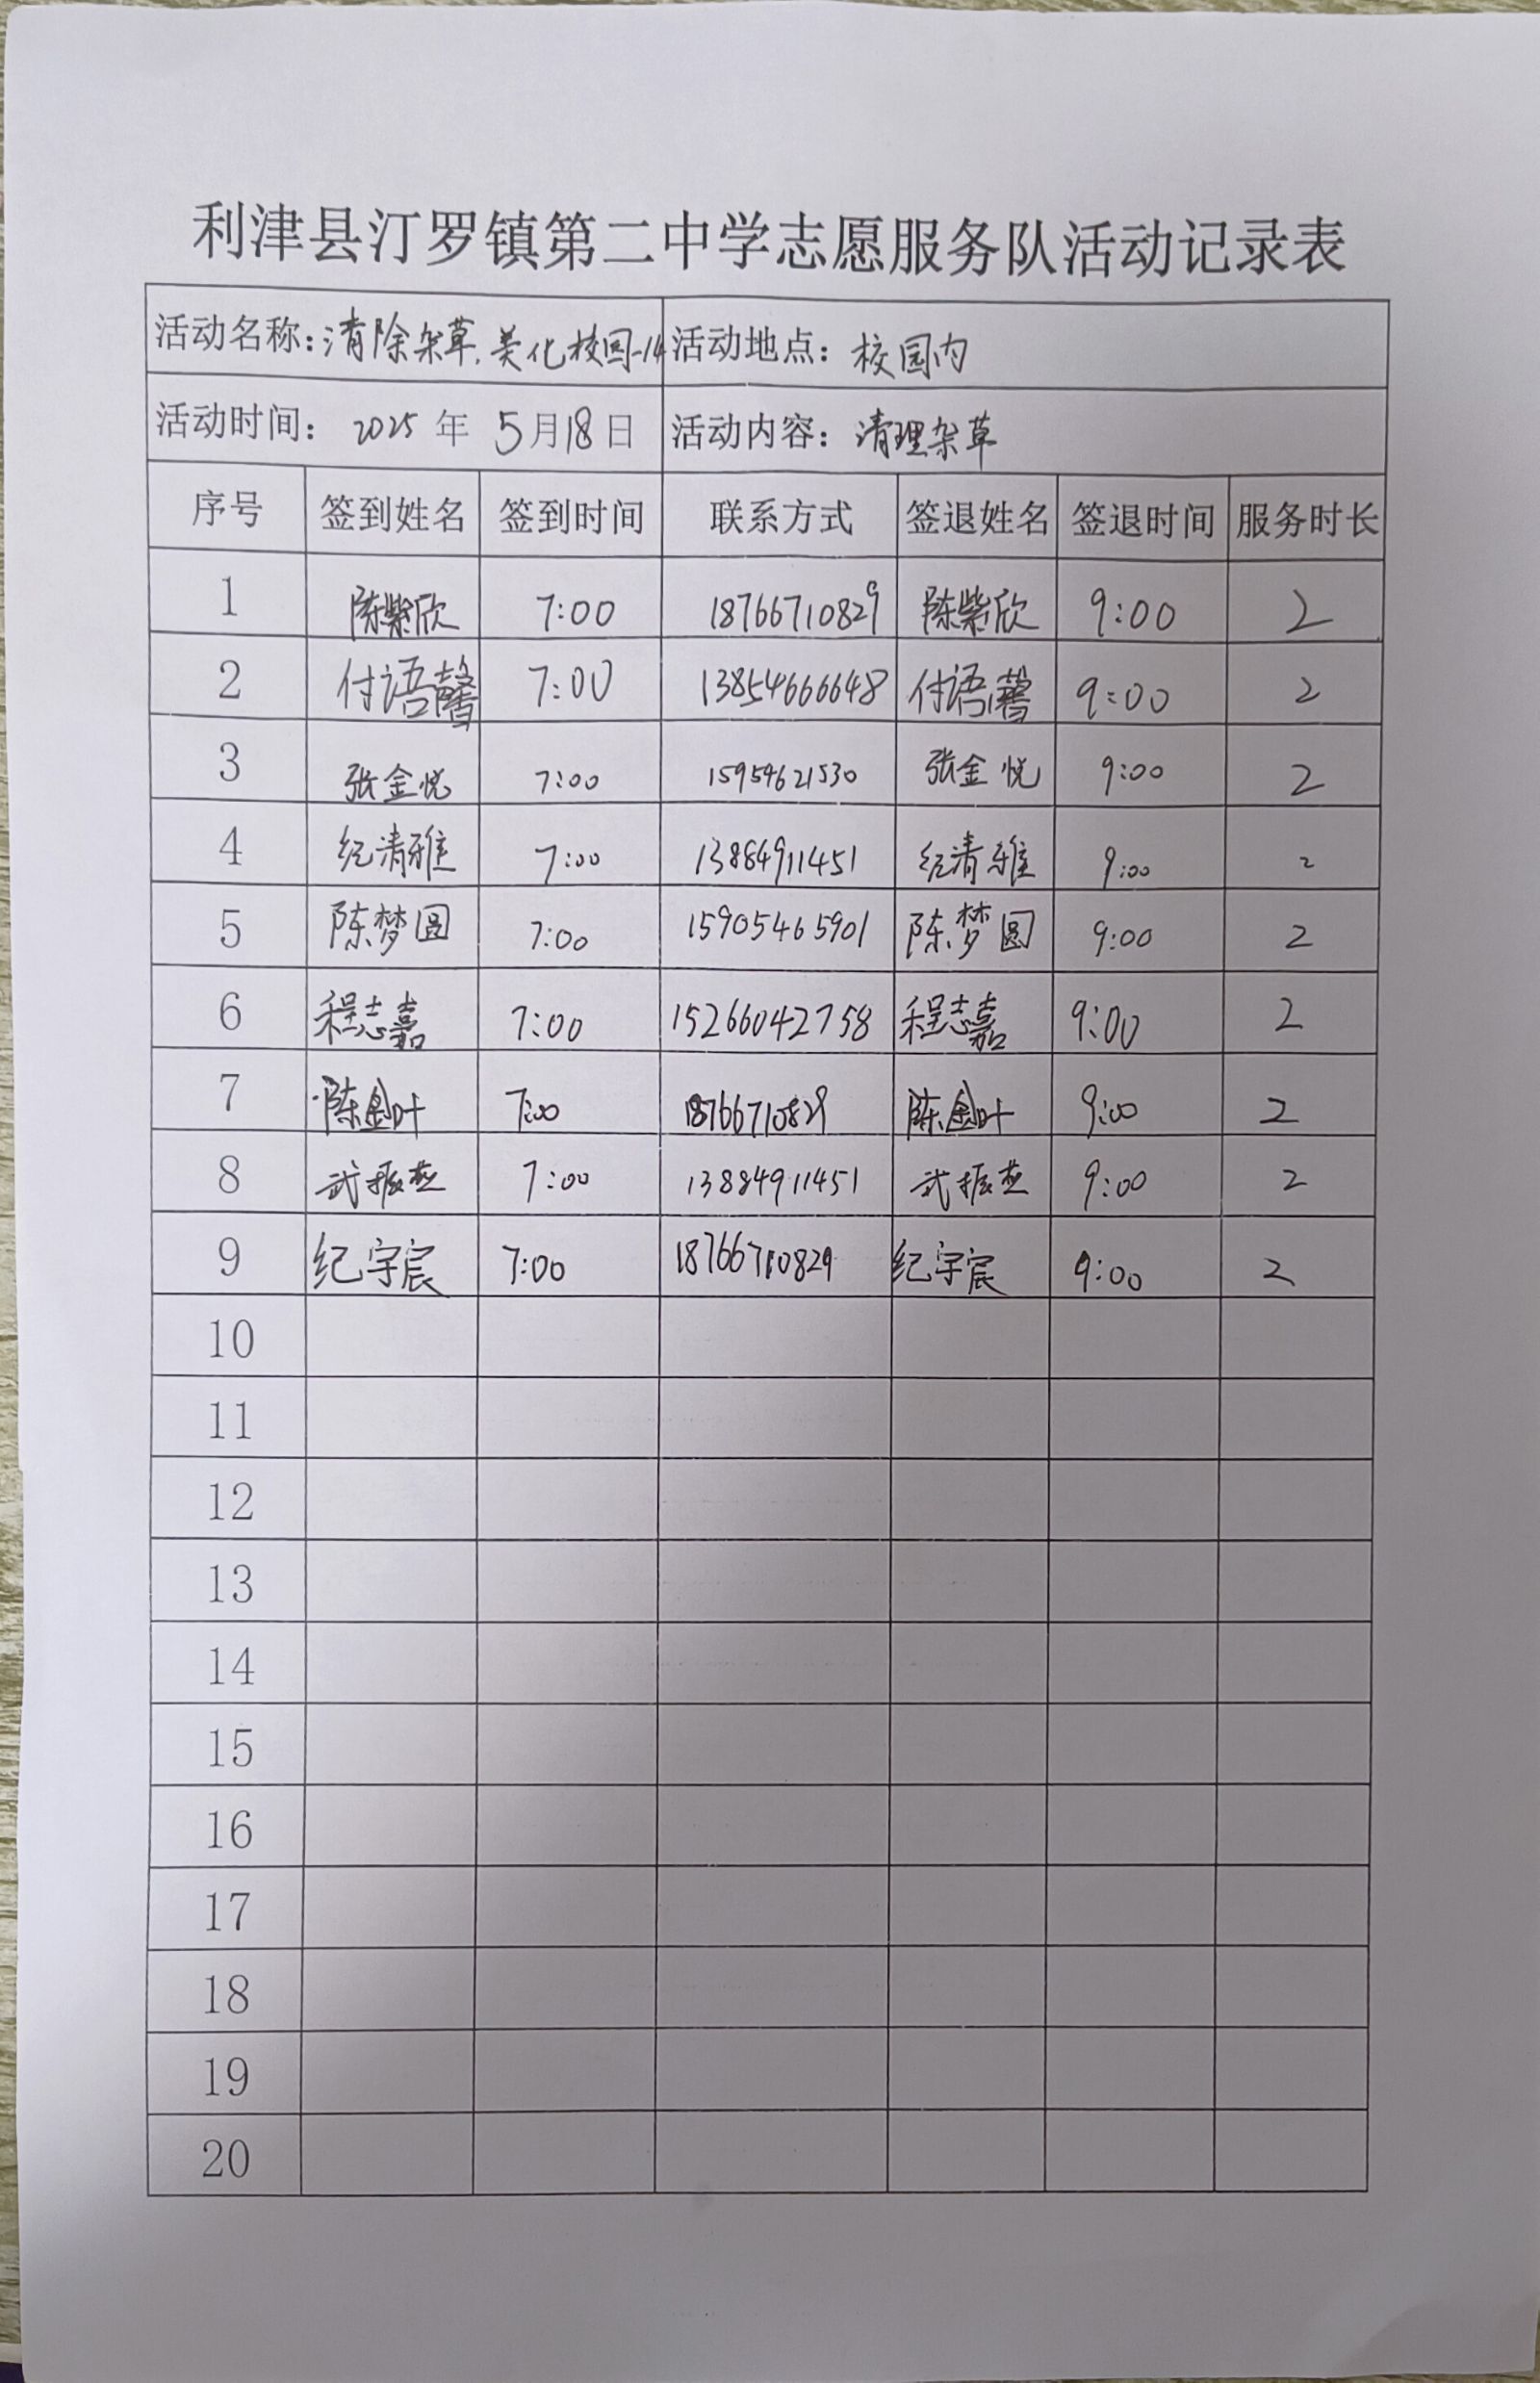 利津县汀罗镇第二中学志愿服务队活动记录表
活动名称：清除杂草.美化校园-14 活动地点：校园内
活动时间：2025年5月18日 活动内容：清理杂草
序号 签到姓名 签到时间 联系方式 签退姓名 签退时间 服务时长
1 陈紫欣 7:00 18766710829 陈紫欣 9:00 2
2 付语馨 7:00 13854666648 付语馨 9:00 2
3 张金悦 7:00 15954621530 张金悦 9:00 2
4 纪清雅 7:00 13884911451 纪清雅 9:00 2
5 陈梦圆 7:00 15905465901 陈梦圆 9:00 2
6 程志嘉 7:00 15266042758 程志嘉 9:00 2
7 陈金叶 7:00 18766710829 陈金叶 9:00 2
8 7:00 13884911451 9:00 2
9 纪宇宸 7:00 18766710829 纪宇宸 9:00 2
10
11
12
13
14
15
16
17
18
19
20